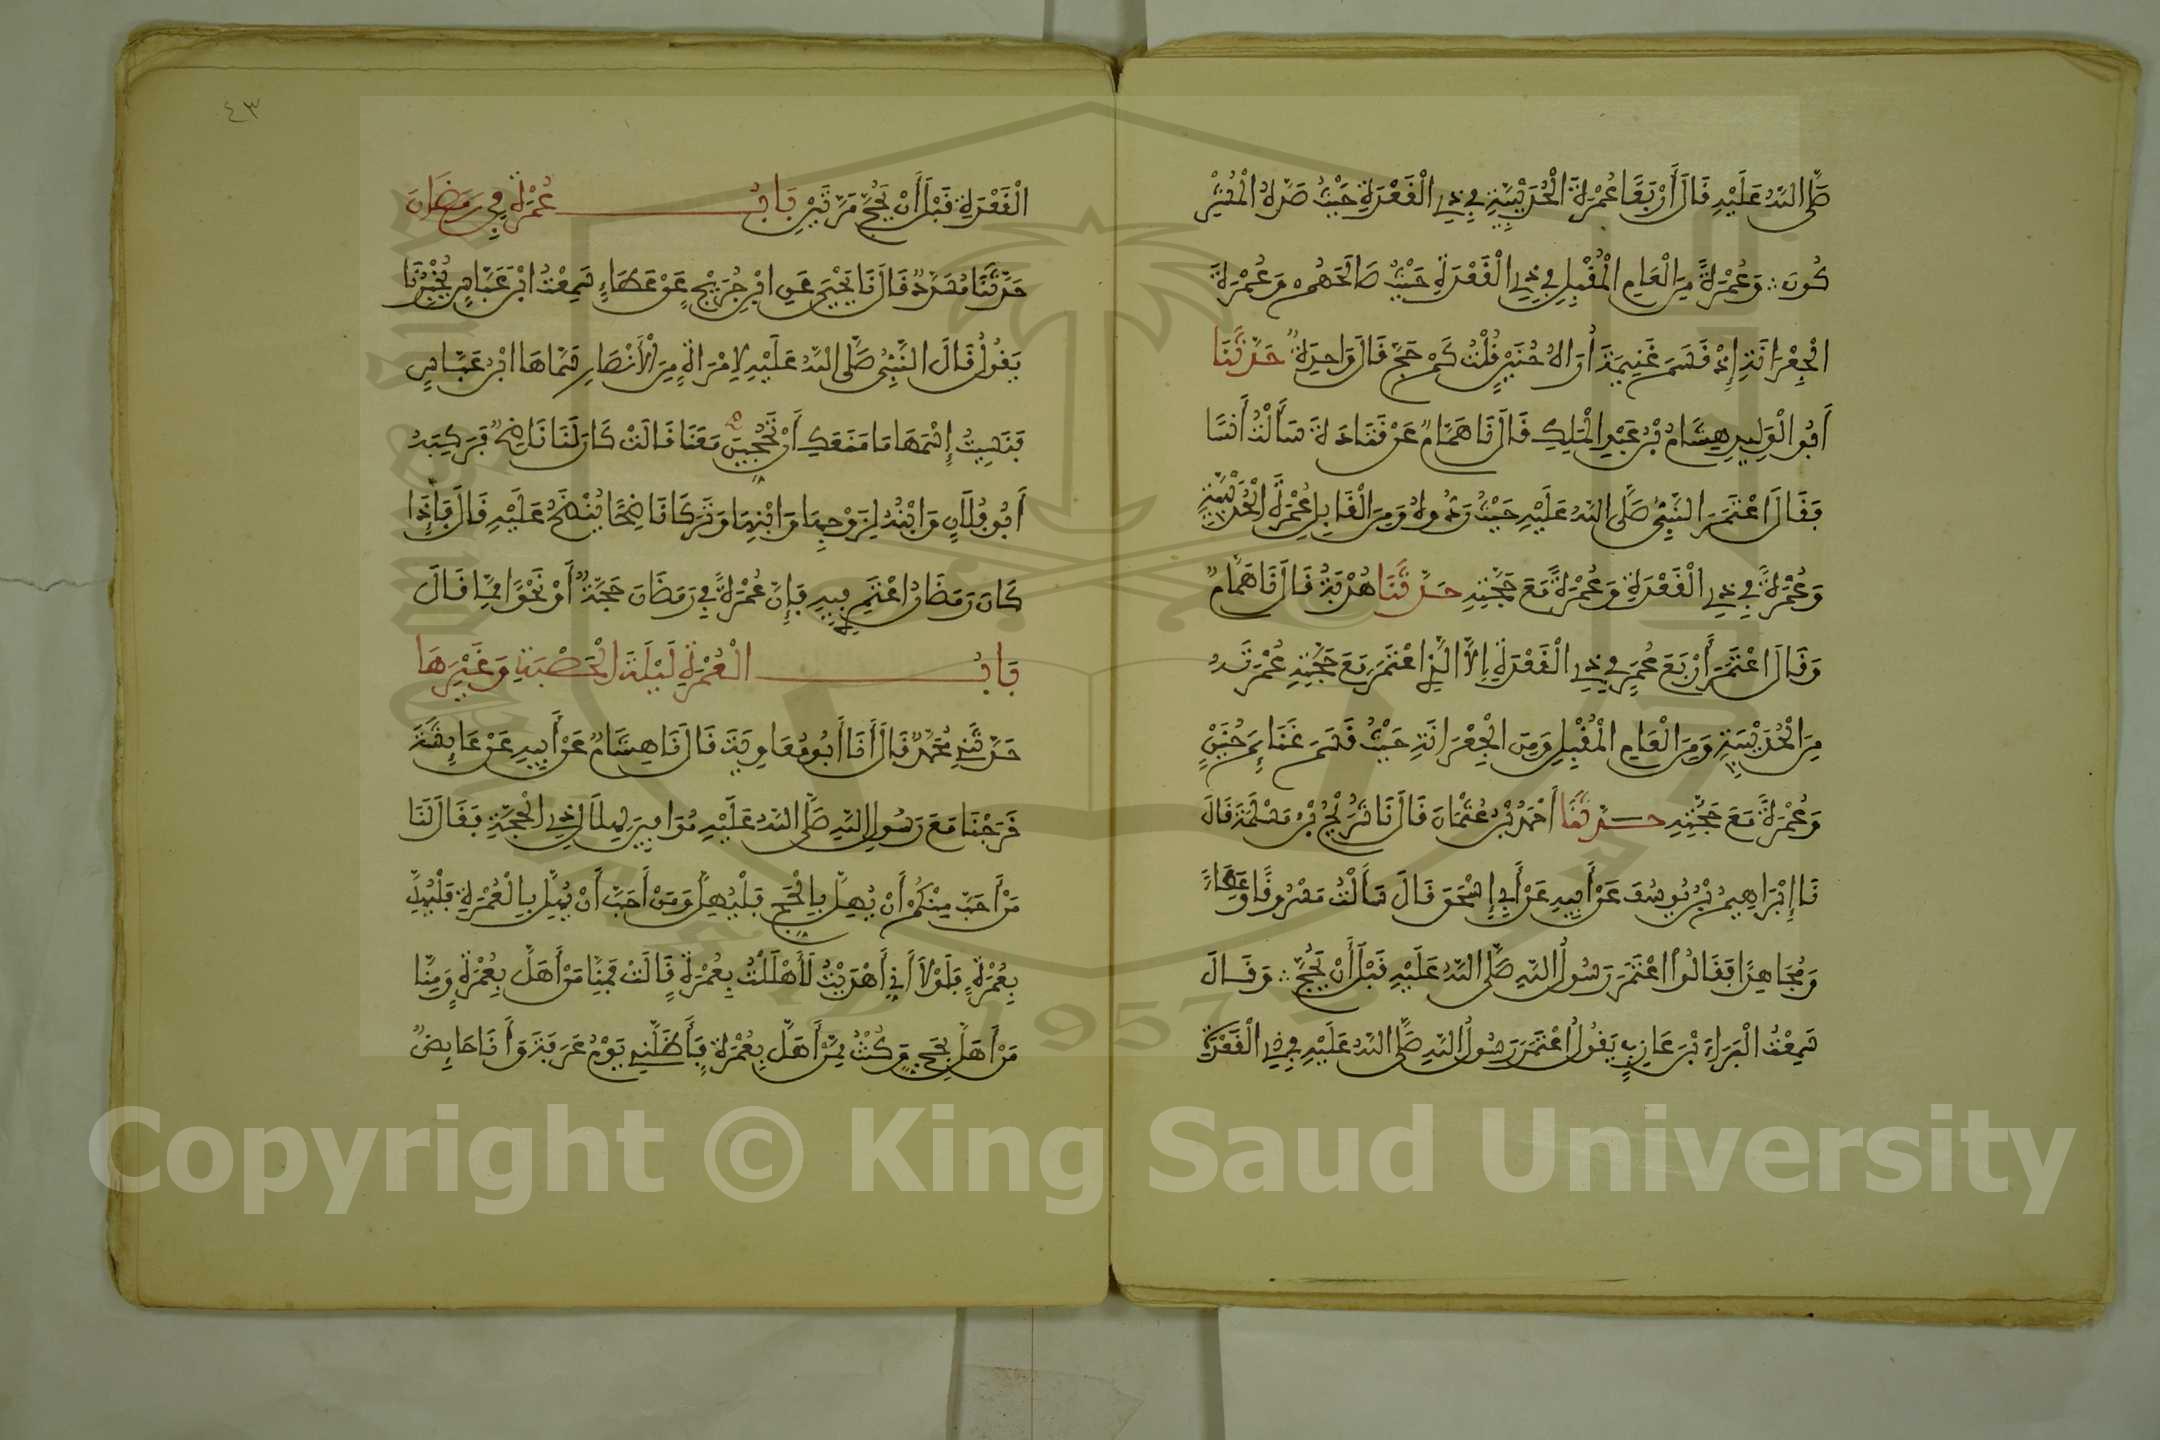 صَلَّى اللَّهُ عَلَيْهِ قَالَ أَرْبَعًا عُمْرَةَ الْحُدَيْبِيَّةِ فِي ذِي الْقَعْدَةِ حَيْثُ صَدَّهُ الْمُشْرِ
كُونَ ∴ وَعُمْرَةً مِنَ الْعَامِ الْمُقْبِلِ فِي ذِي الْقَعْدَةِ حَيْثُ صَالَحَهُمْ وَعُمْرَةَ
الْجِعْرَانَةِ إِذْ قَسَمَ غَنِيمَةَ أُرَاهُ حُنَيْنٍ قُلْتُ كَمْ حَجَّ قَالَ وَاحِدَةً حَدَّثَنَا
أَبُو الْوَلِيدِ هِشَامُ بْنُ عَبْدِ الْمَلِكِ قَالَ نَا هَمَّامٌ عَنْ قَتَادَةَ سَأَلْتُ أَنَسًا
فَقَالَ اعْتَمَرَ النَّبِيُّ صَلَّى اللَّهُ عَلَيْهِ حَيْثُ رَدُّوهُ وَمِنَ الْقَابِلِ عُمْرَةَ الْحُدَيْبِيَّةِ
وَعُمْرَةً فِي ذِي الْقَعْدَةِ وَعُمْرَةً مَعَ حَجَّتِهِ حَدَّثَنَا هُدْبَةُ قَالَ نَا هَمَّامٌ
وَقَالَ اعْتَمَرَ أَرْبَعَ عُمَرٍ فِي ذِي الْقَعْدَةِ إِلَّا الَّذِي اعْتَمَرَ مَعَ حَجَّتِهِ عُمْرَتَهُ
مِنَ الْحُدَيْبِيَّةِ وَمِنَ الْعَامِ الْمُقْبِلِ وَمِنَ الْجِعْرَانَةِ حَيْثُ قَسَمَ غَنَائِمَ حُنَيْنٍ
وَعُمْرَةً مَعَ حَجَّتِهِ حَدَّثَنَا أَحْمَدُ بْنُ عُثْمَانَ قَالَ نَا شُرَيْحُ بْنُ مَسْلَمَةَ قَالَ
نَا إِبْرَاهِيمُ بْنُ يُوسُفَ عَنْ أَبِيهِ عَنْ أَبِي إِسْحَقَ قَالَ سَأَلْتُ مَسْرُوقًا وَعَطَاءً
وَمُجَاهِدًا فَقَالُوا اعْتَمَرَ رَسُولُ اللَّهِ صَلَّى اللَّهُ عَلَيْهِ قَبْلَ أَنْ يَحُجَّ ∴ وَقَالَ
سَمِعْتُ الْبَرَاءَ بْنَ عَازِبٍ يَقُولُ اعْتَمَرَ رَسُولُ اللَّهِ صَلَّى اللَّهُ عَلَيْهِ فِي ذِي الْقَعْدَةِ
٤٣
الْقَعْدَةِ قَبْلَ أَنْ يَحُجَّ مَرَّتَيْنِ بَابُ عُمْرَةٍ فِي رَمَضَانَ
حَدَّثَنَا مُسَدَّدٌ قَالَ نَا يَحْيَى عَنِ ابْنِ جُرَيْجٍ عَنْ عَطَاءٍ سَمِعْتُ ابْنَ عَبَّاسٍ يُخْبِرُنَا
يَقُولُ قَالَ النَّبِيُّ صَلَّى اللَّهُ عَلَيْهِ لِامْرَأَةٍ مِنَ الْأَنْصَارِ سَمَّاهَا ابْنُ عَبَّاسٍ
فَنَسِيتُ إِسْمَهَا مَا مَنَعَكِ أَنْ تَحُجِّينَ مَعَنَا قَالَتْ كَانَ لَنَا نَاضِحٌ فَرَكِبَهُ
أَبُو فُلَانٍ وَابْنُهُ لِزَوْجِهَا وَابْنِهَا وَتَرَكَ نَاضِحًا يُنْضَحُ عَلَيْهِ قَالَ فَإِذَا
كَانَ رَمَضَانُ اعْتَمِرِي فِيهِ فَإِنَّ عُمْرَةً فِي رَمَضَانَ حَجَّةٌ أَوْ نَحْوًا مِمَّا قَالَ
بَابُ الْعُمْرَةِ لَيْلَةَ الْحَصْبَةِ وَغَيْرِهَا
حَدَّثَنِي مُحَمَّدٌ قَالَ أَنَا أَبُو مُعَاوِيَةَ قَالَ نَا هِشَامٌ عَنْ أَبِيهِ عَنْ عَائِشَةَ
خَرَجْنَا مَعَ رَسُولِ اللَّهِ صَلَّى اللَّهُ عَلَيْهِ مُوَافِينَ لِهِلَالِ ذِي الْحِجَّةِ فَقَالَ لَنَا
مَنْ أَحَبَّ مِنْكُمْ أَنْ يُهِلَّ بِالْحَجِّ فَلْيُهِلَّ وَمَنْ أَحَبَّ أَنْ يُهِلَّ بِالْعُمْرَةِ فَلْيُهِلَّ
بِعُمْرَةٍ فَلَوْلَا أَنِّي أَهْدَيْتُ لَأَهْلَلْتُ بِعُمْرَةٍ قَالَتْ فَمِنَّا مَنْ أَهَلَّ بِعُمْرَةٍ وَمِنَّا
مَنْ أَهَلَّ بِحَجٍّ وَكُنْتُ مِمَّنْ أَهَلَّ بِعُمْرَةٍ فَأَظَلَّنِي يَوْمُ عَرَفَةَ وَأَنَا حَائِضٌ
1957
Copyright © King Saud University